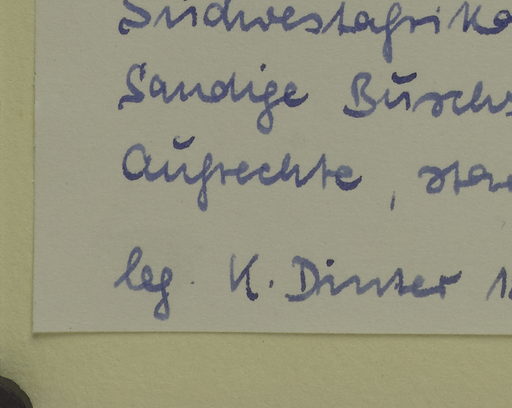 Südwestafrika
Sandige Busch
Aufrechte, star
leg. K. Dinter 1